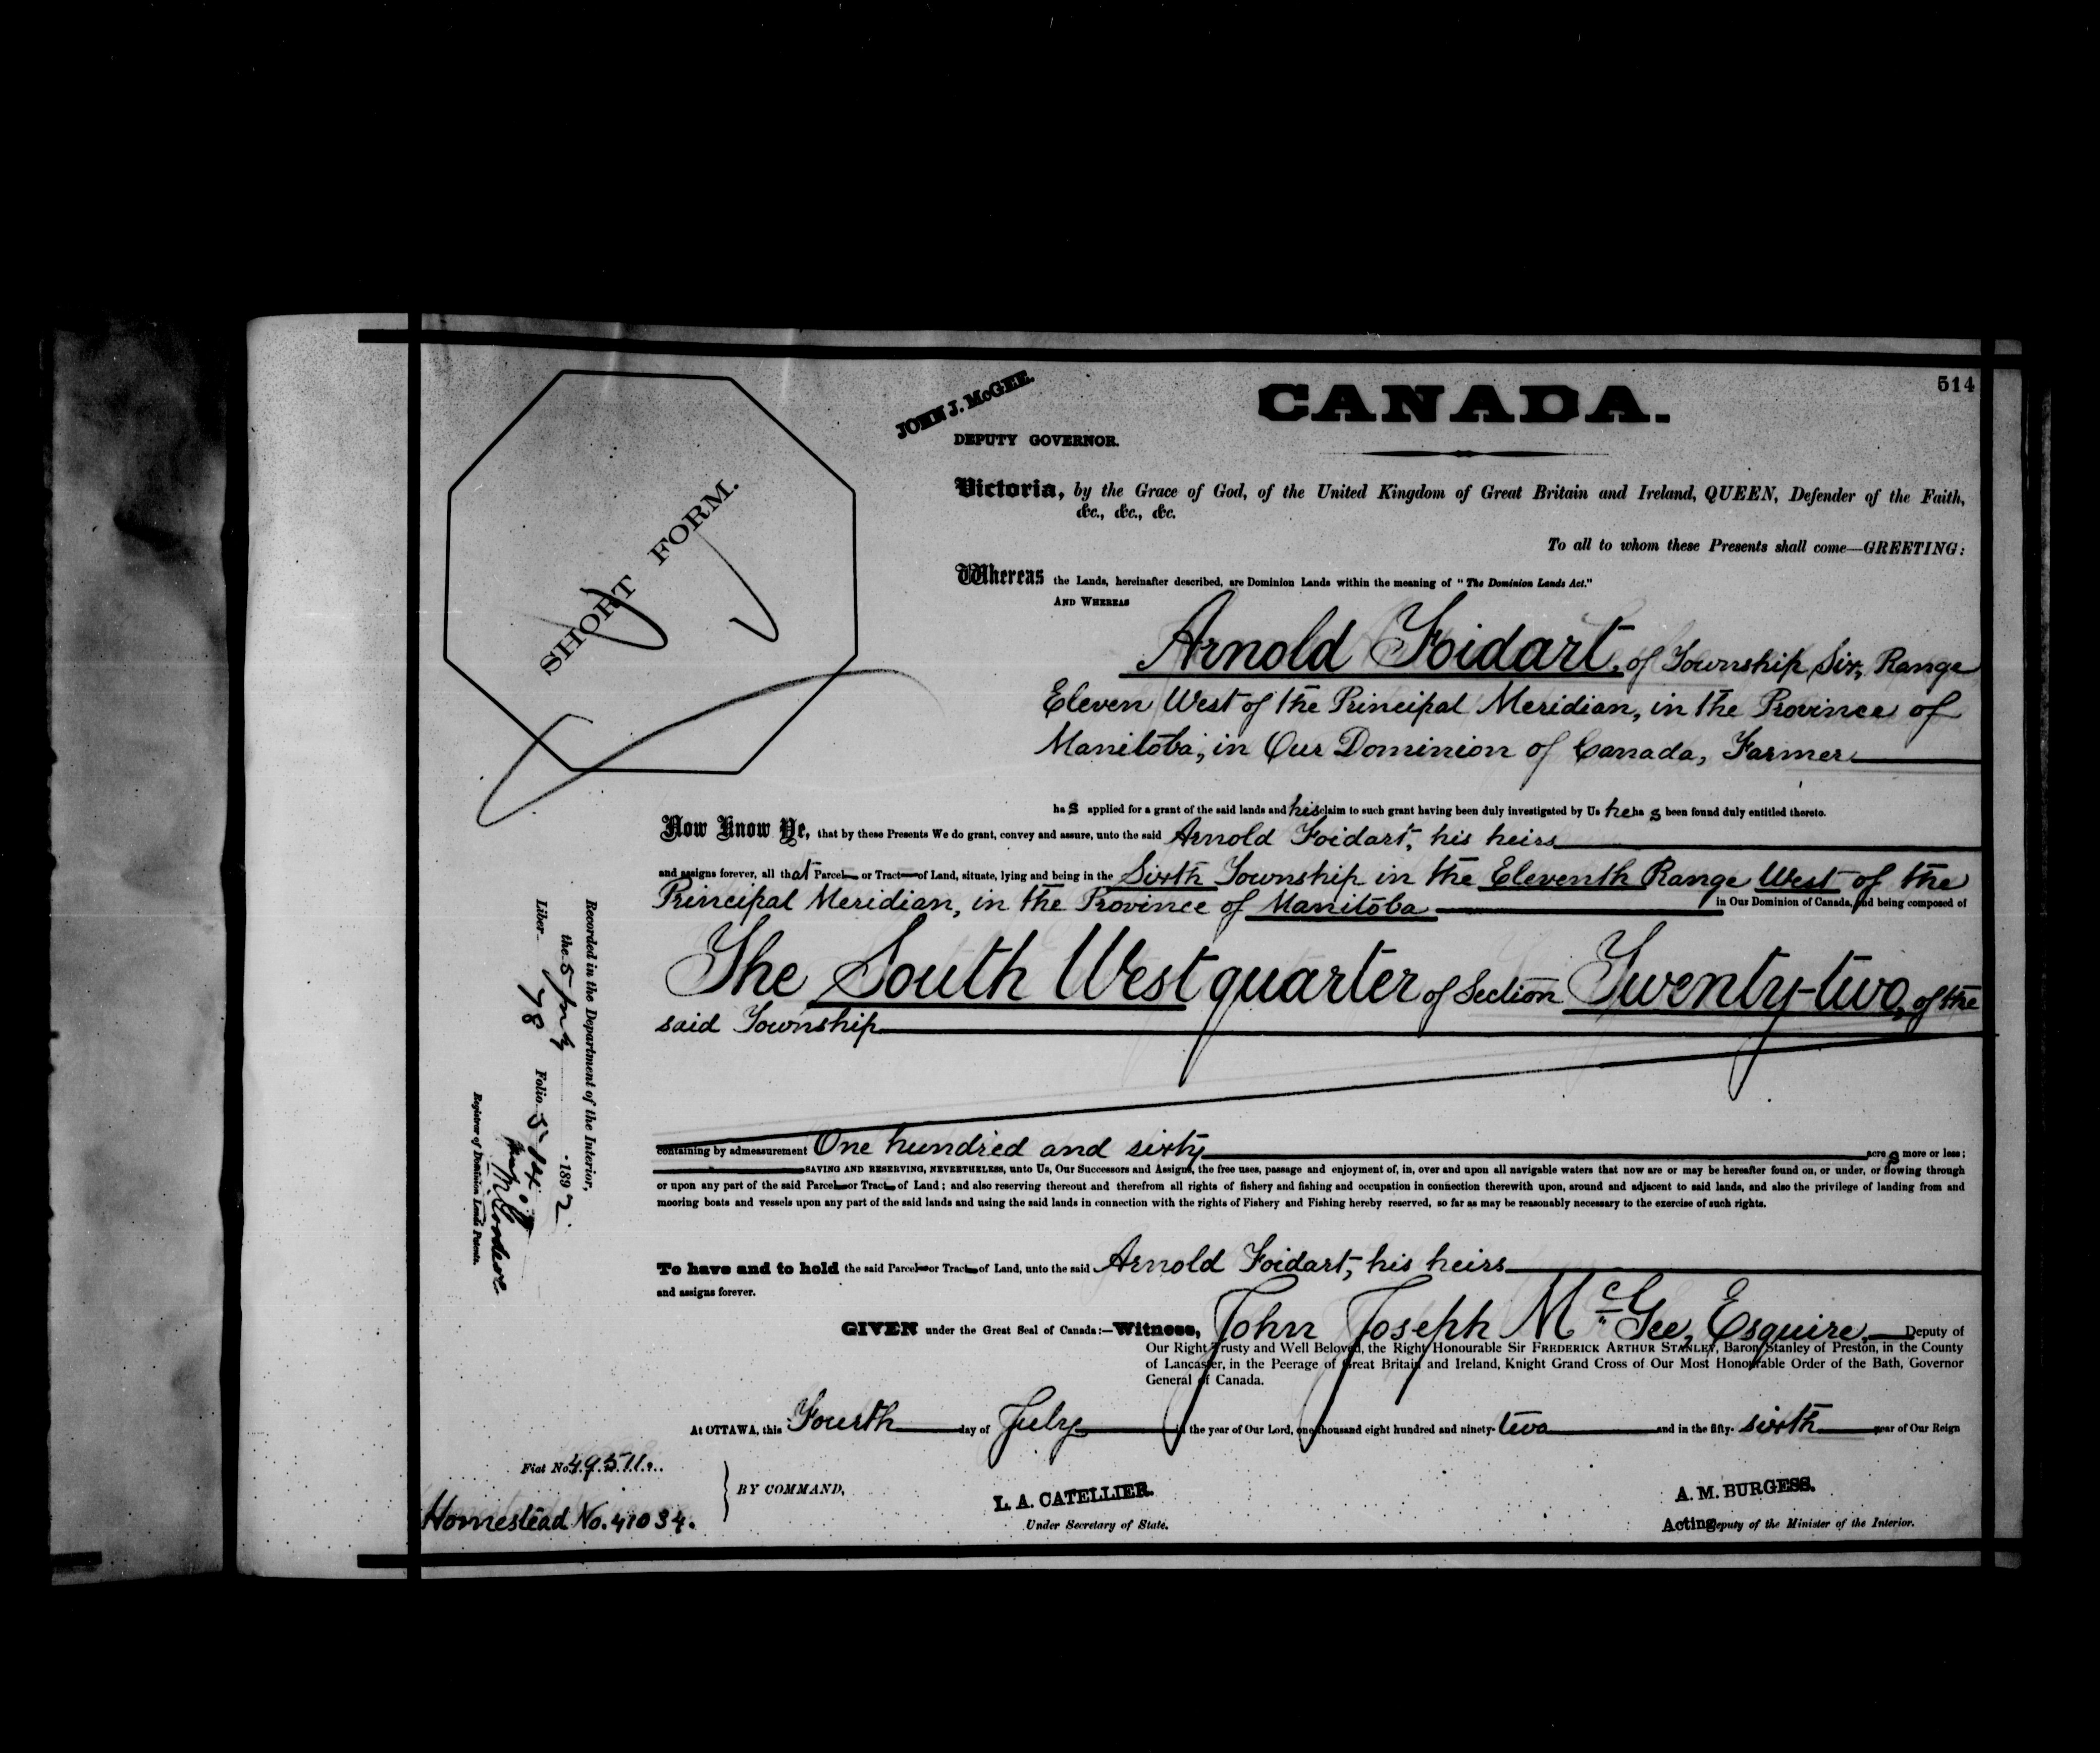 514
CANADA.
JOHN J. McGEE.
DEPUTY GOVERNOR.
SHORT FORM.
Victoria, by the Grace of God, of the United Kingdom of Great Britain and Ireland, QUEEN, Defender of the Faith,
&c., &c., &c.
To all to whom these Presents shall come—GREETING:
Whereas the Lands, hereinafter described, are Dominion Lands within the meaning of "The Dominion Lands Act."
AND WHEREAS
Arnold Foidart, of Township Six, Range
Eleven West of the Principal Meridian, in the Province of
Manitoba, in Our Dominion of Canada, Farmer
has applied for a grant of the said lands and his claim to such grant having been duly investigated by Us he has been found duly entitled thereto.
Now Know Ye, that by these Presents We do grant, convey and assure, unto the said Arnold Foidart, his heirs
and assigns forever, all that Parcel or Tract of Land, situate, lying and being in the Sixth Township in the Eleventh Range West of the
Principal Meridian, in the Province of Manitoba in Our Dominion of Canada, and being composed of
The South West quarter of Section Twenty-two, of the
said Township
containing by admeasurement One hundred and sixty acres more or less;
SAVING AND RESERVING, NEVERTHELESS, unto Us, Our Successors and Assigns, the free uses, passage and enjoyment of, in, over and upon all navigable waters that now are or may be hereafter found on, or under, or flowing through
or upon any part of the said Parcel or Tract of Land; and also reserving thereout and therefrom all rights of fishery and fishing and occupation in connection therewith upon, around and adjacent to said lands, and also the privilege of landing from and
mooring boats and vessels upon any part of the said lands and using the said lands in connection with the rights of Fishery and Fishing hereby reserved, so far as may be reasonably necessary to the exercise of such rights.
To have and to hold the said Parcel or Tract of Land, unto the said Arnold Foidart, his heirs
and assigns forever.
GIVEN under the Great Seal of Canada:—Witness, John Joseph McGee, Esquire, Deputy of
Our Right Trusty and Well Beloved, the Right Honourable Sir FREDERICK ARTHUR STANLEY, Baron Stanley of Preston, in the County
of Lancaster, in the Peerage of Great Britain and Ireland, Knight Grand Cross of Our Most Honourable Order of the Bath, Governor
General of Canada.
At OTTAWA, this Fourth day of July in the year of Our Lord, one thousand eight hundred and ninety-two and in the fifty-sixth year of Our Reign
BY COMMAND,
L. A. CATELLIER.
Under Secretary of State.
A. M. BURGESS.
Acting Deputy of the Minister of the Interior.
Fiat No. 49571.
Homestead No. 41034.
Recorded in the Department of the Interior,
the 5 July 1892
Liber 78 Folio 514
Registrar of Dominion Lands Patents.